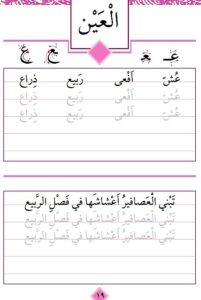 الْعَيْن
عـ ـعـ ـع ع
عُشّ أَفْعى رَبيع ذِراع
عُشّ أَفْعى رَبيع ذِراع
عُشّ أَفْعى رَبيع ذِراع
تَبْني الْعَصافيرُ أَعْشاشَها في فَصْلِ الرَّبيع
تَبْني الْعَصافيرُ أَعْشاشَها في فَصْلِ الرَّبيع
تَبْني الْعَصافيرُ أَعْشاشَها في فَصْلِ الرَّبيع
١٩